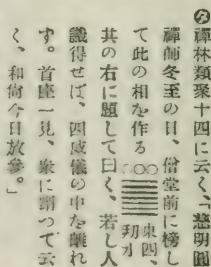 禪林類聚十四に云く、慈明圓
禪師冬至の日、僧堂前に榜し
て此の相を作る ○○○
其の右に題して曰く、若し人
識得せば、四威儀の中を離れ
ず。首座一見、衆に謂つて云
く、和尚今日放參。」